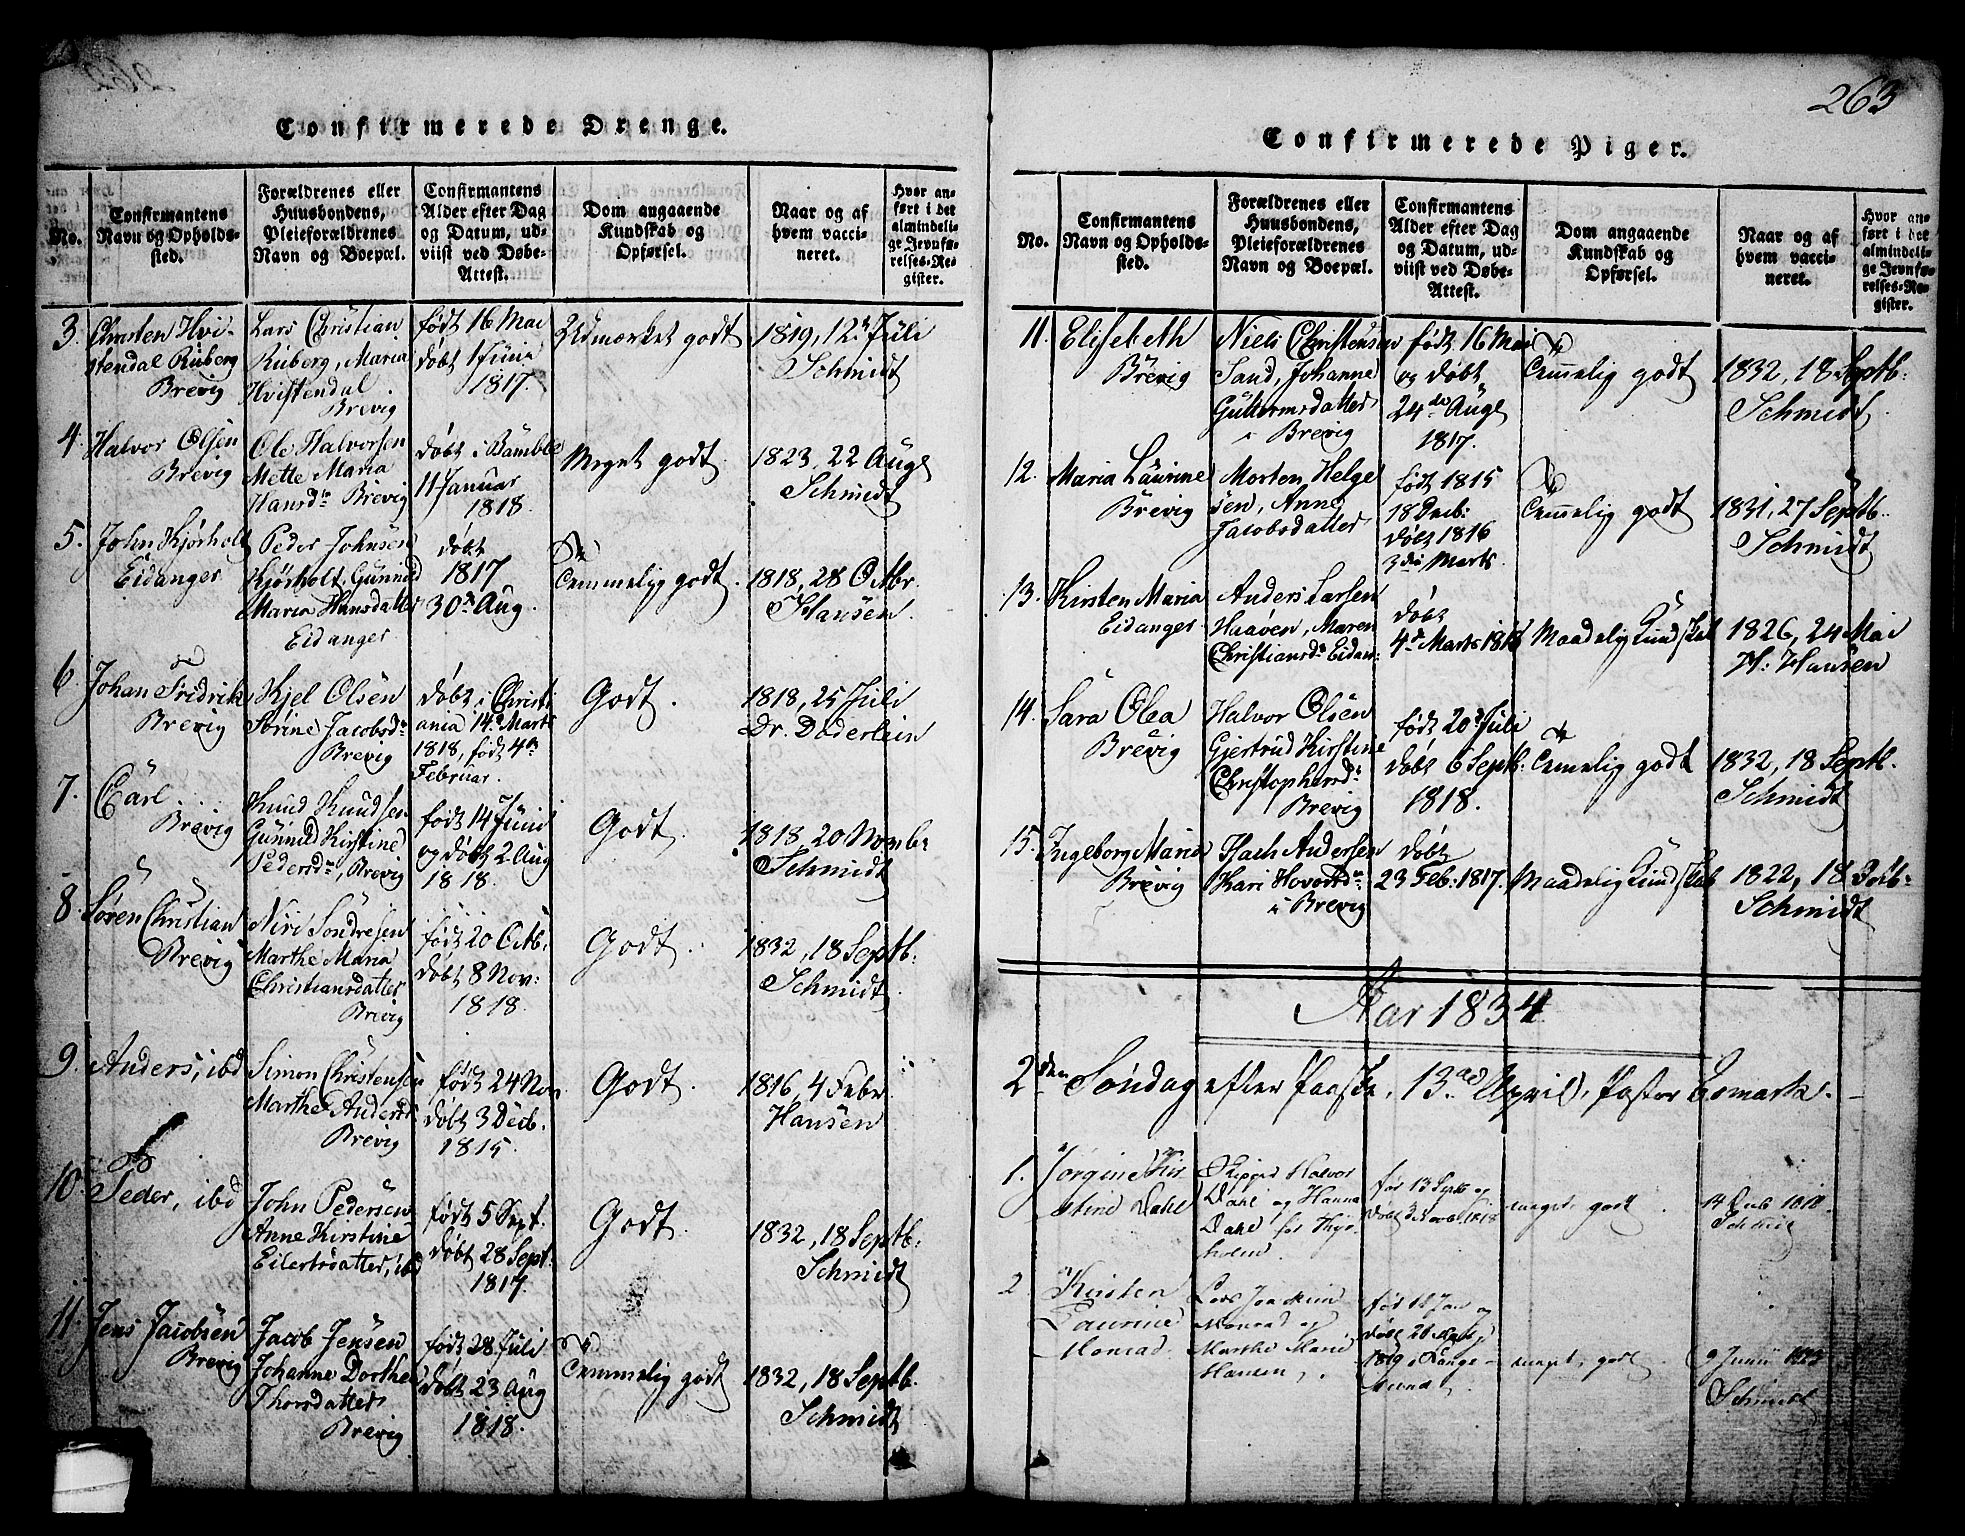 263
Confirmerede Drenge.
No.
Confirmantens
Navn og Opholds-
sted.
Forældrenes eller
Huusbondens,
Pleieforældrenes
Navn og Boepæl.
Confirmantens
Alder efter Dag
og Datum, ud-
viist ved Døbe-
Attest.
Dom angaaende
Kundskab og
Opførsel.
Naar og af
hvem vacci-
neret.
Hvor an-
ført i det
almindeli-
ge Jevnfø-
relses-Re-
gister.
3.
Christen Hvi-
stendal Ruberg
Brevig
Lars Christian
Ruberg, Maria
Hvistendal
Brevig
født 16 Mai
døbt 1 Junii
1817.
Udmærket godt
1819, 12 Juli
Schmidt
4.
Halvor Olsen
Brevig
Ole Halvorsen
Mette Maria
Hansd. Brevig
døbt i Bamble
11 Januar
1818.
Meget godt.
1823, 22 Aug
Schmidt
5.
John Kjørholt
Eidanger
Peder Johnsen
Kjørholt, Gunnild
Maria Hansdatter
Eidanger
døbt
1817
30 Aug.
Temmelig godt.
1818, 28 Octbr.
Hansen.
6.
Johan Fredrik
Brevig
Kjel Olsen
Sørine Jacobsd.
Brevig
Døbt i Christi
ania 14 Marts
1818, født 4
Februar.
Godt.
1818, 25 Juli
Dr. Døderlein
7.
Carl
Brevig
Knud Knudsen
Gunnild Kirstine
Pedersd., Brevig
født 14 Junii
og døbt 2 Aug
1818.
Godt.
1818, 20 Novmb:
Schmidt
8.
Søren Christian
Brevig
Niri Sondresen
Marthe Maria
Christiansdatter
Brevig
født 20 Octb.
døbt 8 Nov:
1818.
Godt.
1832, 18 Septb:
Schmidt.
9.
Anders, ibd
Simon Christensen
Marthe Andersd.
Brevig
født 24 Nov
døbt 3 Decb.
1815.
Godt.
1816, 4 Febr.
Hansen
10.
Peder, ibd
John Pedersen
Anne Kirstine
Eilertsdatter, ibd
født 5 Sept.
døbt 28 Sept:
1817.
Godt
1832, 18 Septb:
Schmidt
11.
Jens Jacobsen
Brevig
Jacob Jensen
Johanne Dorthea
Thorsdatter
Brevig
født 28 Juli
døbt 23 Aug
1818.
Temmelig godt
1832, 18 Septb.
Schmidt
Confirmerede Piger.
No.
Confirmantens
Navn og Opholds-
sted.
Forældrenes eller
Huusbondens,
Pleieforældrenes
Navn og Boepæl.
Confirmantens
Alder efter Dag
og Datum, ud-
viist ved Døbe-
Attest.
Dom angaaende
Kundskab og
Opførsel.
Naar og af
hvem vacci-
neret.
Hvor an-
ført i det
almindeli-
ge Jevnfø-
relses-Re-
gister.
11.
Elisebeth
Brevig
Niels Christensen
Sand, Johanne
Guttormsdatter
i Brevig
født 16 Mai
og døbt
24de Aug
1817.
Temmelig godt
1832, 18 Septb:
Schmidt.
12.
Maria Laurine
Brevig
Morten Helge
sen, Anne
Jacobsdatter
født 1815
18 Decb:
døbt 1816
3die Marts.
Temmelig godt
1831, 27 Septb.
Schmidt
13.
Kirsten Maria
Eidanger
Anders Larsen
Haaøen, Maren
Christiansd. Eidan:
Døbt
4de Marts 1818
Maadelig Kundskab
1826, 24 Mai
H: Hansen
14.
Sara Olea
Brevig
Halvor Olsen
Gjertrud Kirstine
Christophersd.
Brevig
født 20 Juli
døbt 6 Septb:
1818.
Temelig godt
1832, 18 Septb.
Schmidt
15.
Ingeborg Maria
Brevig
Hach Andersen
Kari Hovorsd.
i Brevig
døbt
23 Feb: 1817.
Maadelig Kundskab
1822, 18 Octb:
Schmidt
Aar 1834
2den Søndag efter Paaske, 13de April, Pastor Esmark.
1.
Jørgine Kir
stine Dahl
Skipper Halvor
Dahl og Hanna
Dahl før Thor
holm.
fød 13 Septb og
døbt 3 Novbr 1818
meget godt.
14 Decb 1818
Schmidt
2
Kirsten
Laurine
Monrad.
Lars Joachim
Monrad og
Marthe Marie
Hansen.
fød 12 Jan og
døbt 26
1819 i Lange-
sund.
meget godt.
9 Junii 1823
Schmidt